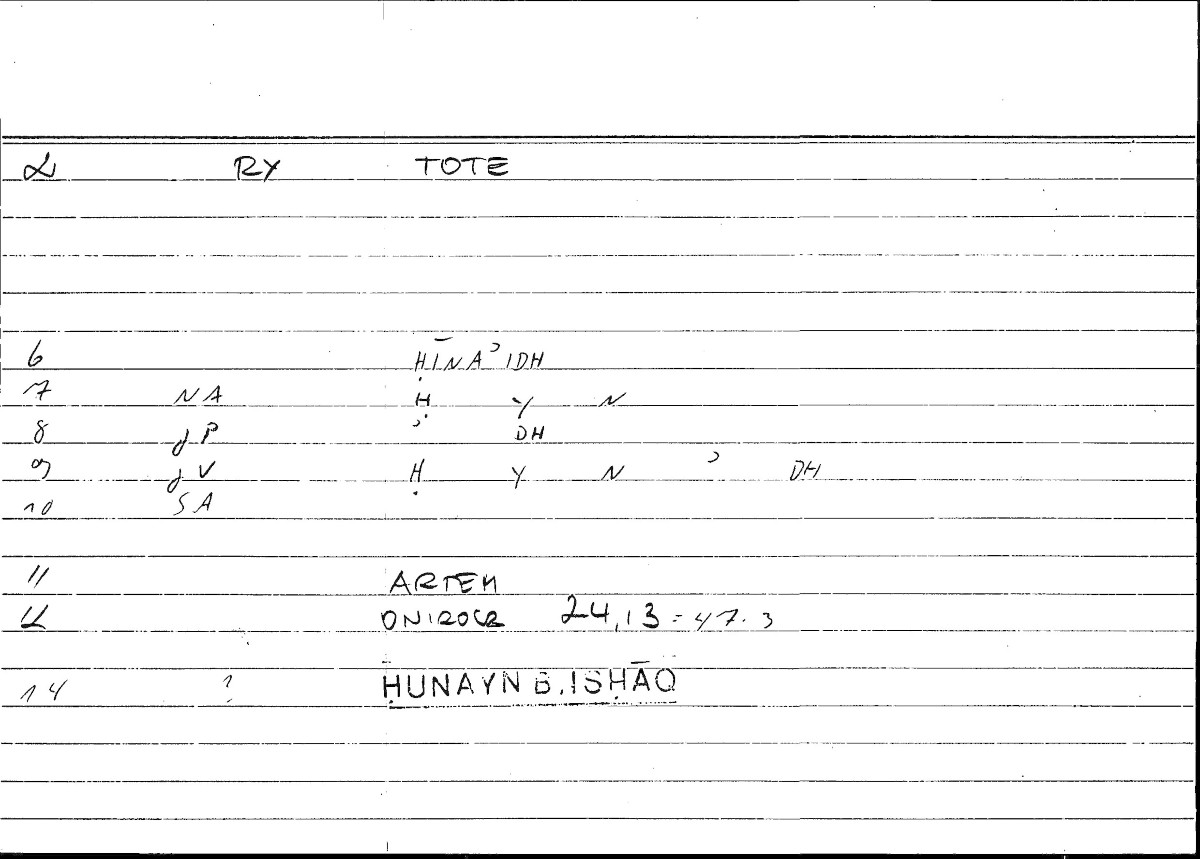 2 RY TOTE
6 ḤĪNAʾIDH
7 NA Ḥ Y N
8 jP ʾ DH
9 jV Ḥ Y N ʾ DH
10 SA
11 ARTEM
12 ONIROCR 24,13 = 47.3
14 ? ḤUNAYN B. ISḤĀQ